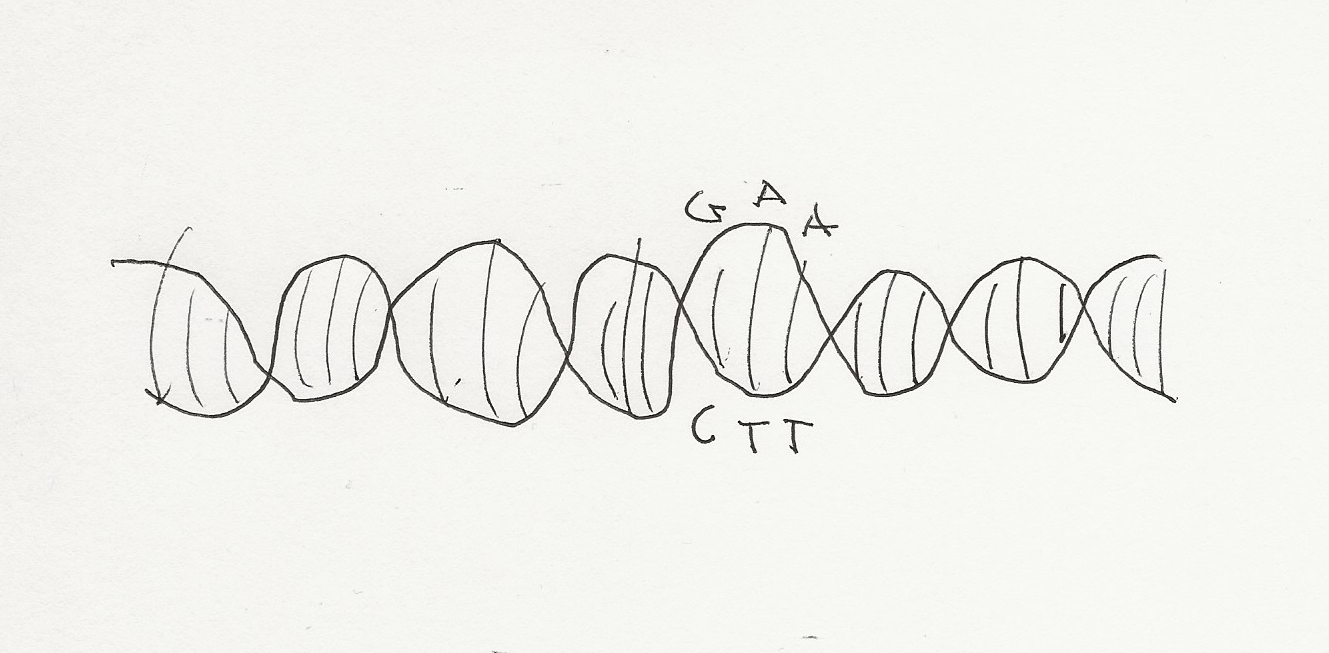 G A A
C T T